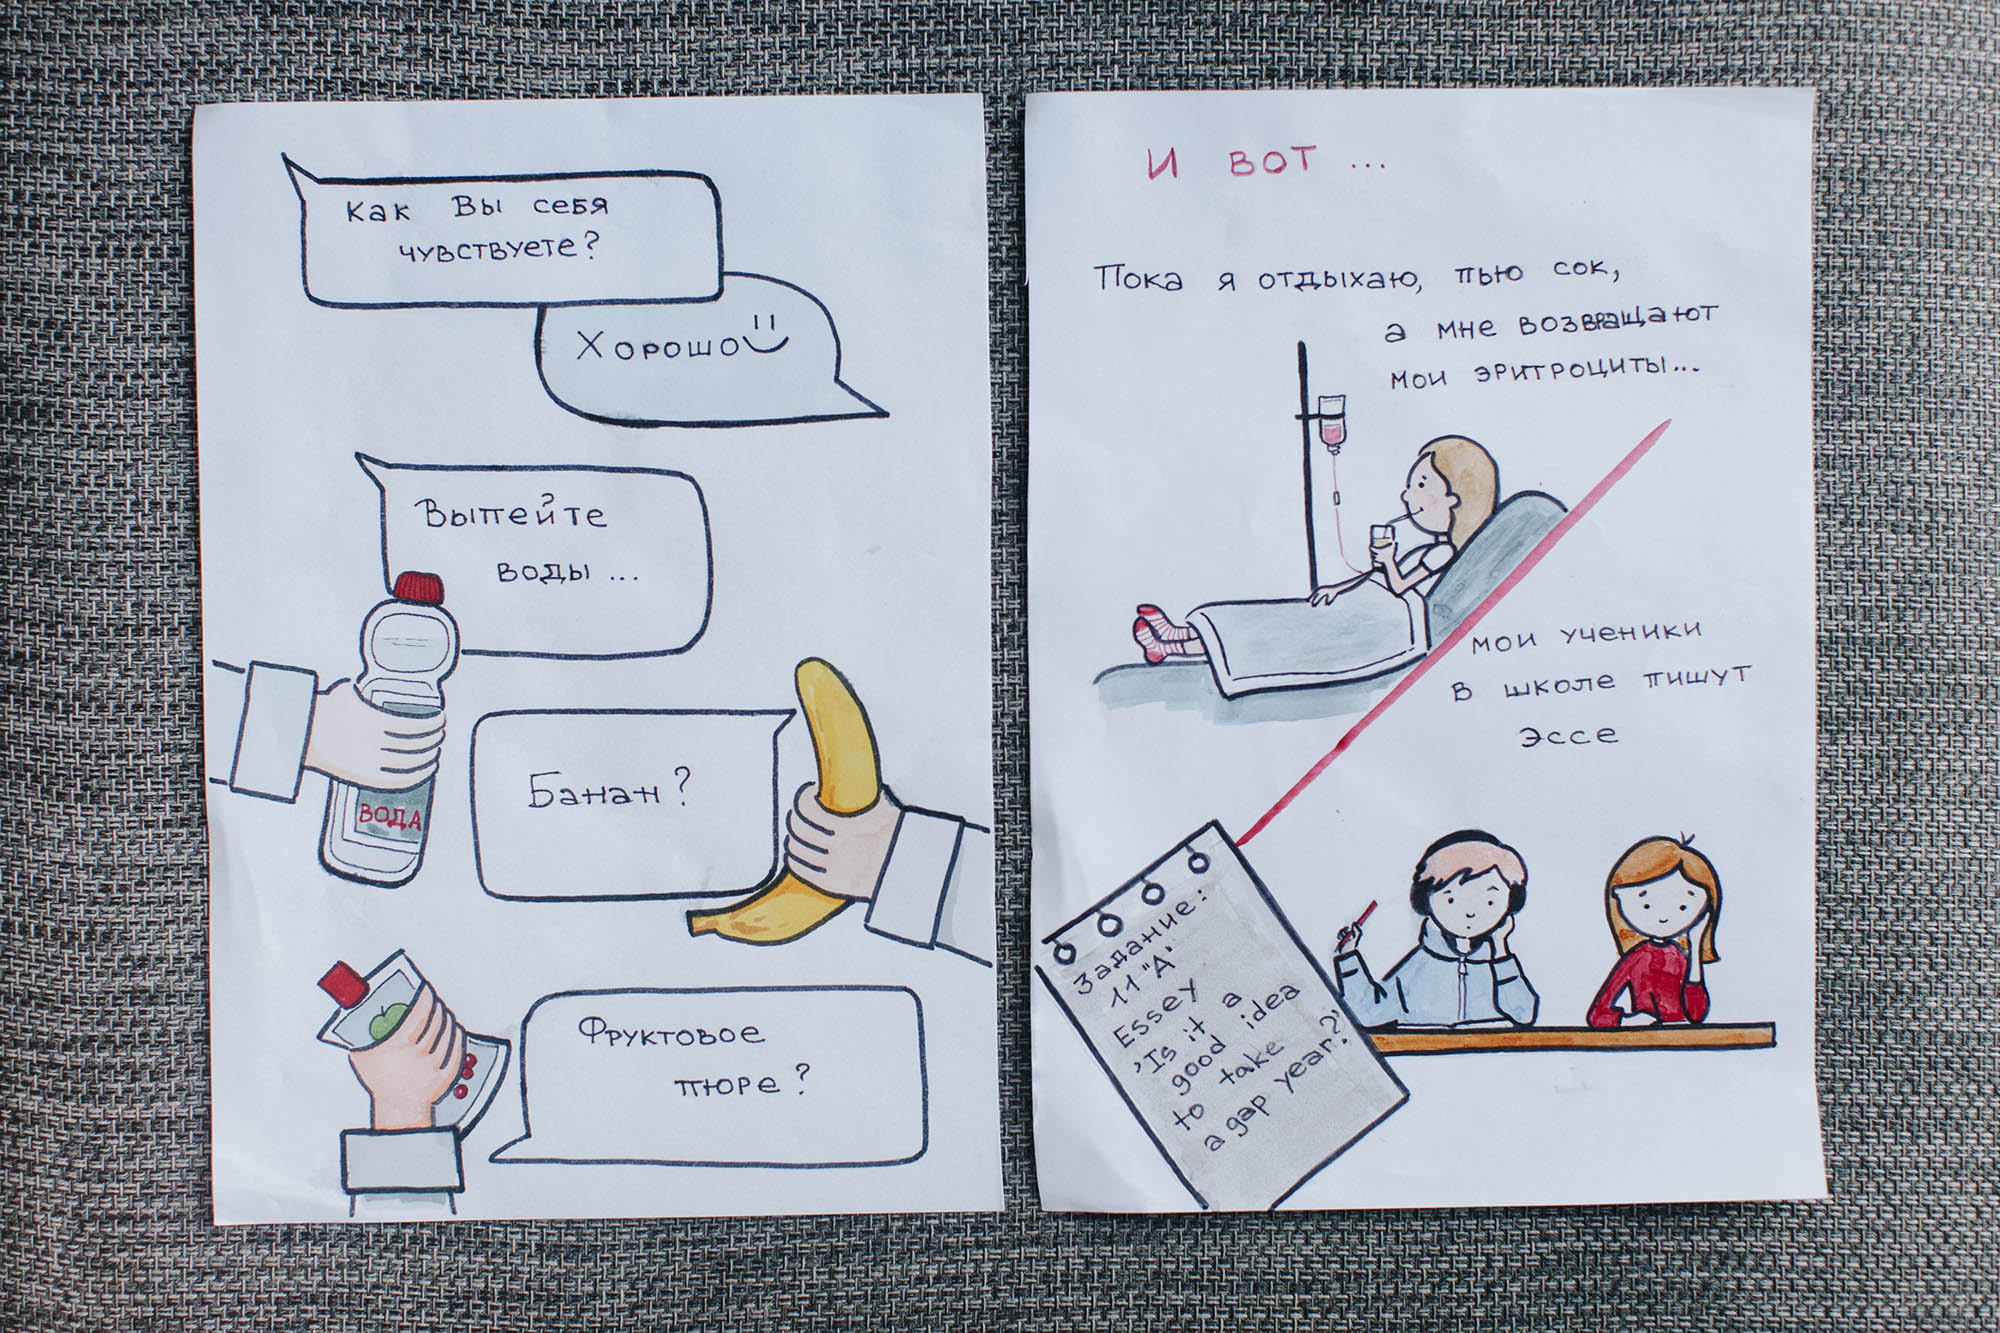 Как Вы себя
чувствуете?
Хорошо
Выпейте
воды...
ВОДА
Банан?
Фруктовое
пюре?
И ВОТ...
Пока я отдыхаю, пью сок,
а мне возвращают
мои эритроциты...
мои ученики
в школе пишут
эссе
Задание:
11 "А"
Essey
"Is it a
good idea
to take
a gap year?"